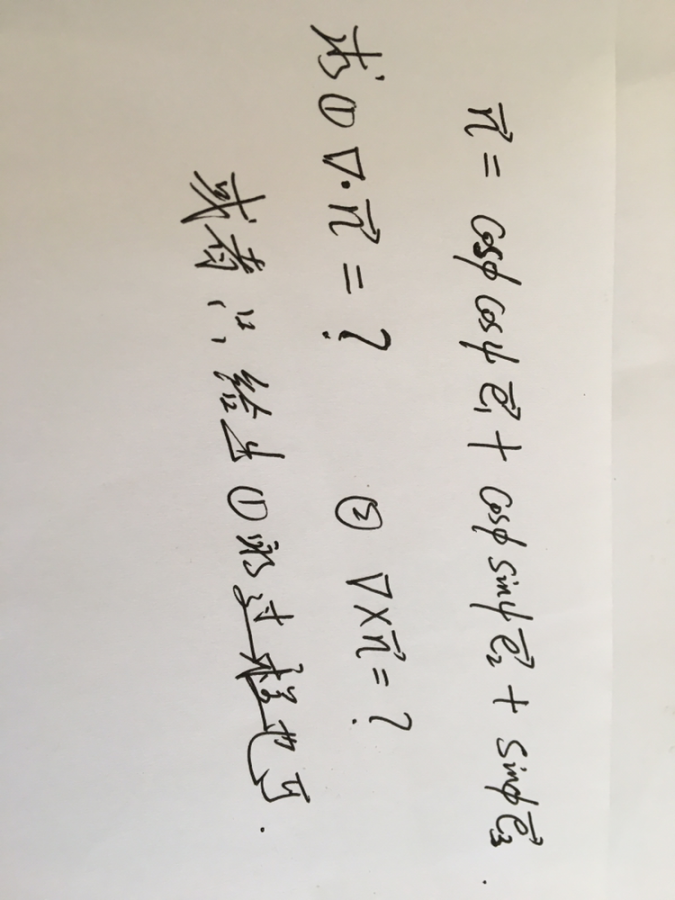 n⃗ = cosφ cosψ e⃗₁ + cosφ sinψ e⃗₂ + sinφ e⃗₃.
求① ∇·n⃗ = ? ② ∇×n⃗ = ?
或者只给出①的过程也可.